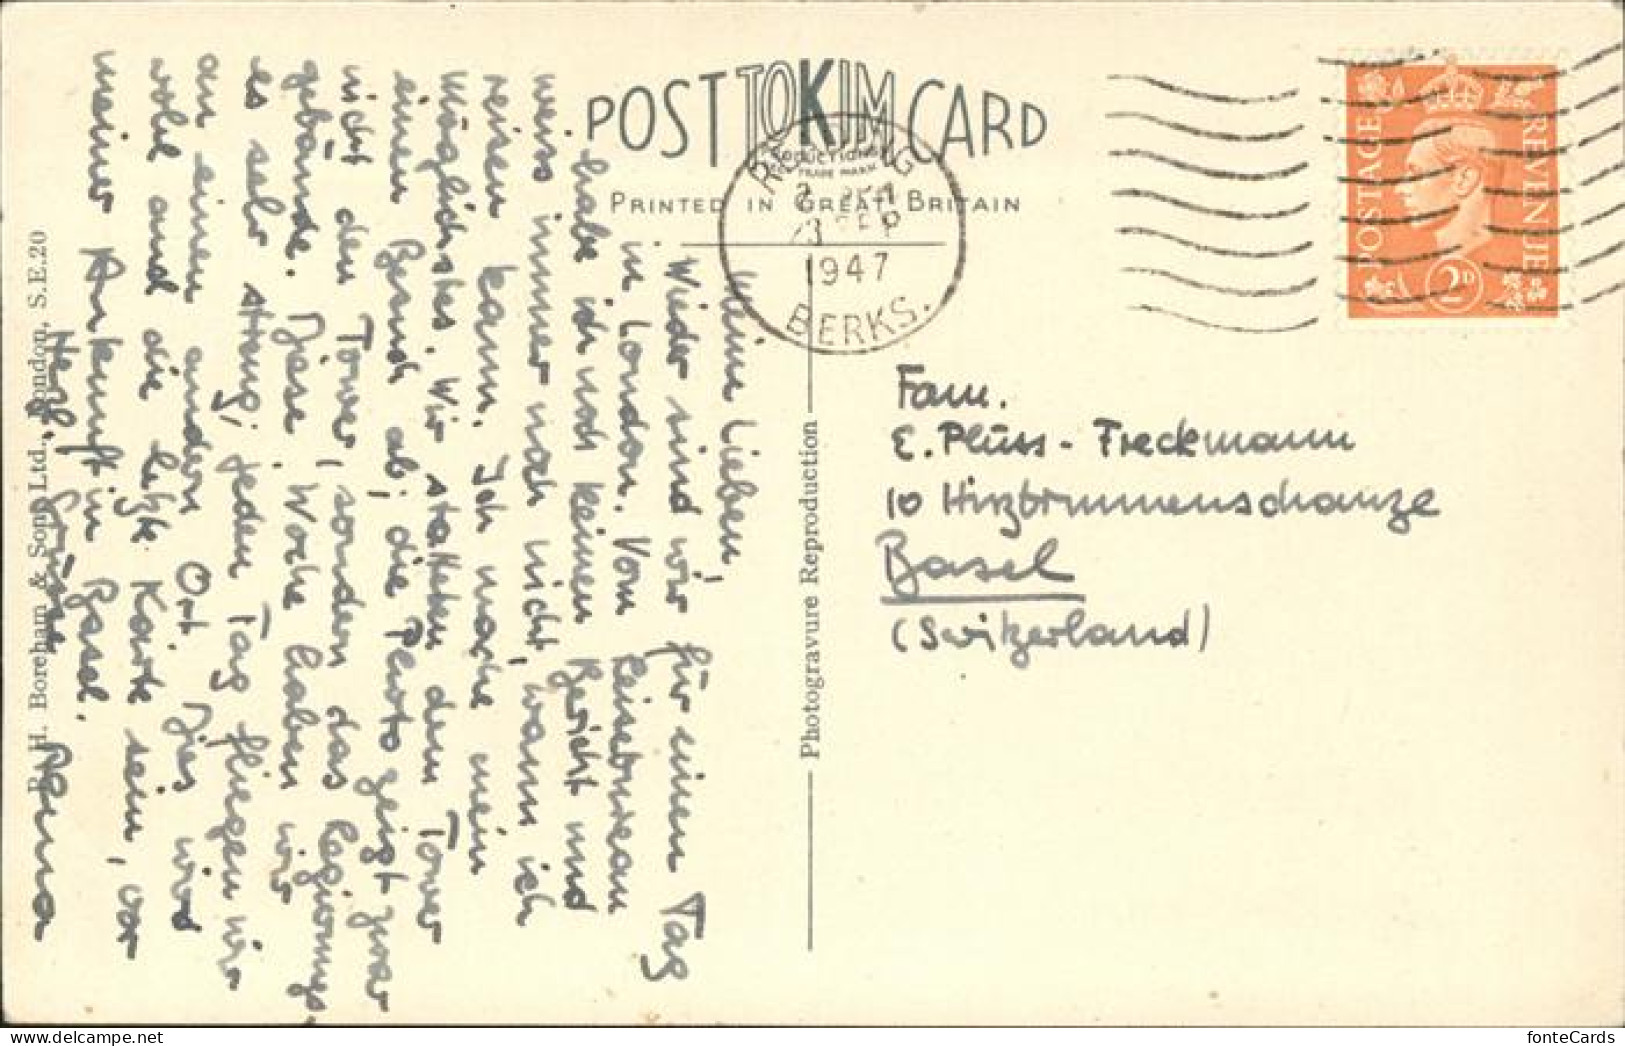 POST TOKIM CARD
PRODUCTIONS
TRADE MARK
PRINTED IN GREAT BRITAIN
READING
1947
BERKS.
POSTAGE
REVENUE
2D
Meine Lieben,
Wieder sind wir für einen Tag
in London. Vom Reisebureau
habe ich noch keinen Bericht und
weiss immer noch nicht, wann ich
reisen kann. Ich mache mein
Möglichstes. Wir statteten dem Tower
einen Besuch ab; die Photo zeigt zwar
nicht den Tower, sondern das Regierungs-
gebäude. Diese Woche haben wir
es sehr streng; jeden Tag fliegen wir
an einen andern Ort. Dies wird
wohl auch die letzte Karte sein, vor
meiner Ankunft in Basel.
Herzl. Grüsse
Photogravure Reproduction
R. H. Boreham & Sons Ltd., London, S.E.20
Fam.
E. Plüss-Freckmann
10 Hirzbrunnenschanze
Basel
(Switzerland)
fonteCards